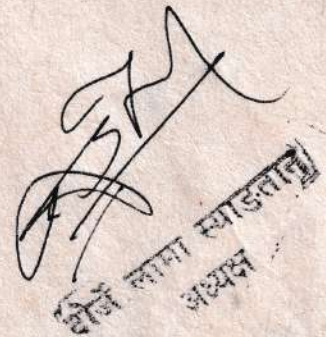 दोर्जे लामा स्याङतान
अध्यक्ष